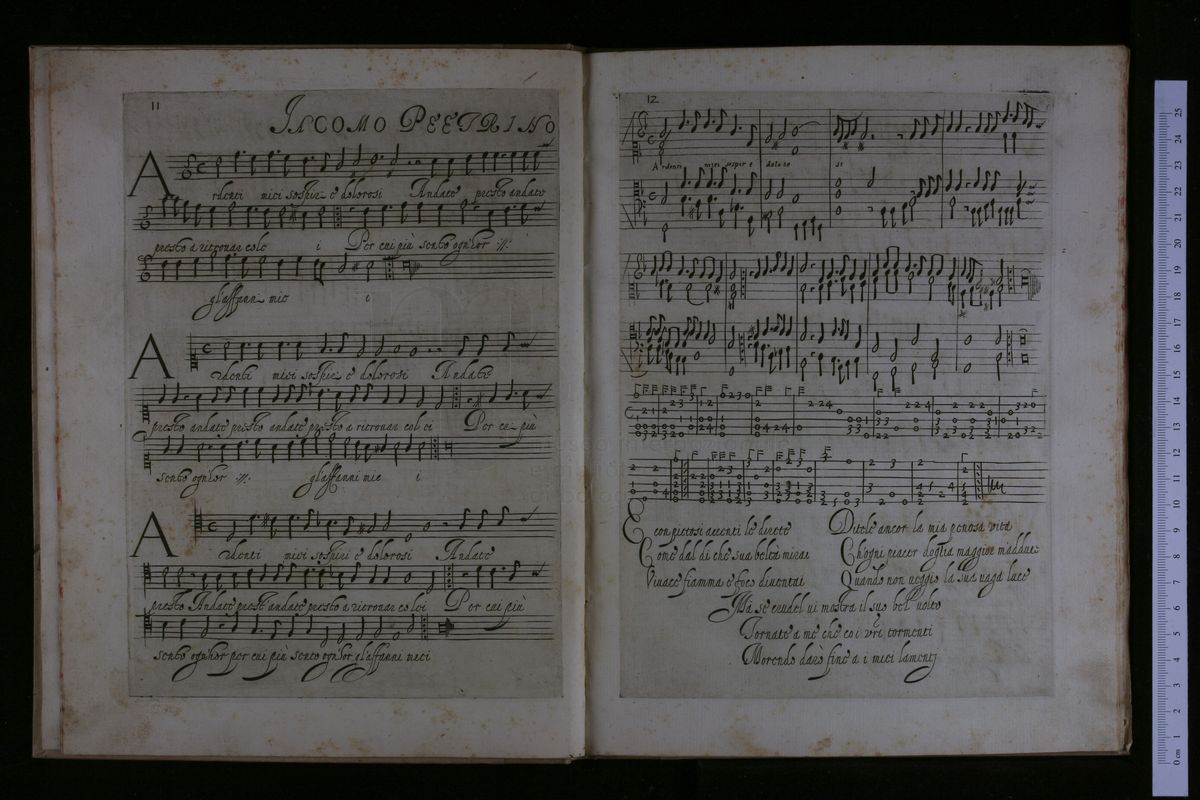 11
IACOMO PEETRINO
Ardenti miei sospir e dolorosi Andate presto andate
presto a ritrovar colei Per cui più sento ogn'hor :||:
gl'affanni miei
Ardenti miei sospir e dolorosi Andate
presto andate presto andate presto a ritrovar colei Per cui più
sento ogn'hor :||: gl'affanni miei
Ardenti miei sospiri e dolorosi Andate
presto Andate presto andate presto a ritrovar colei Per cui più
sento ogn'hor per cui più sento ogn'hor gl'affanni miei
12
Ardenti miei sospir e dolorosi
E con pietosi accenti le direte
Come dal dì che sua beltà mirai
Vivace fiamma e foco diventai
Ditele ancor la mia penosa vita
Ch'ogni piacer doglia maggior m'adduce
Quando non veggio la sua vaga luce
Ma se crudel vi mostra il suo bel volto
Tornate a me che coi vri tormenti
Morendo darò fine a i miei lamenti
0 cm 1 2 3 4 5 6 7 8 9 10 11 12 13 14 15 16 17 18 19 20 21 22 23 24 25